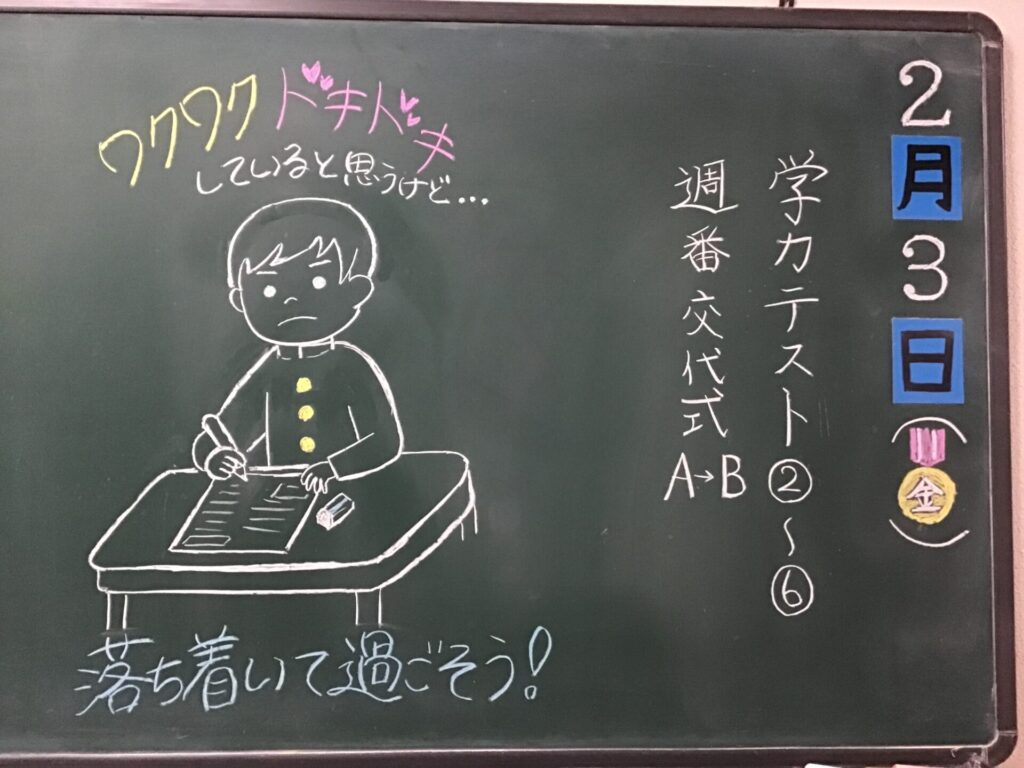 2月3日(金)
学力テスト②～⑥
週番交代式A→B
ワクワクドキドキ
していると思うけど...
落ち着いて過ごそう!